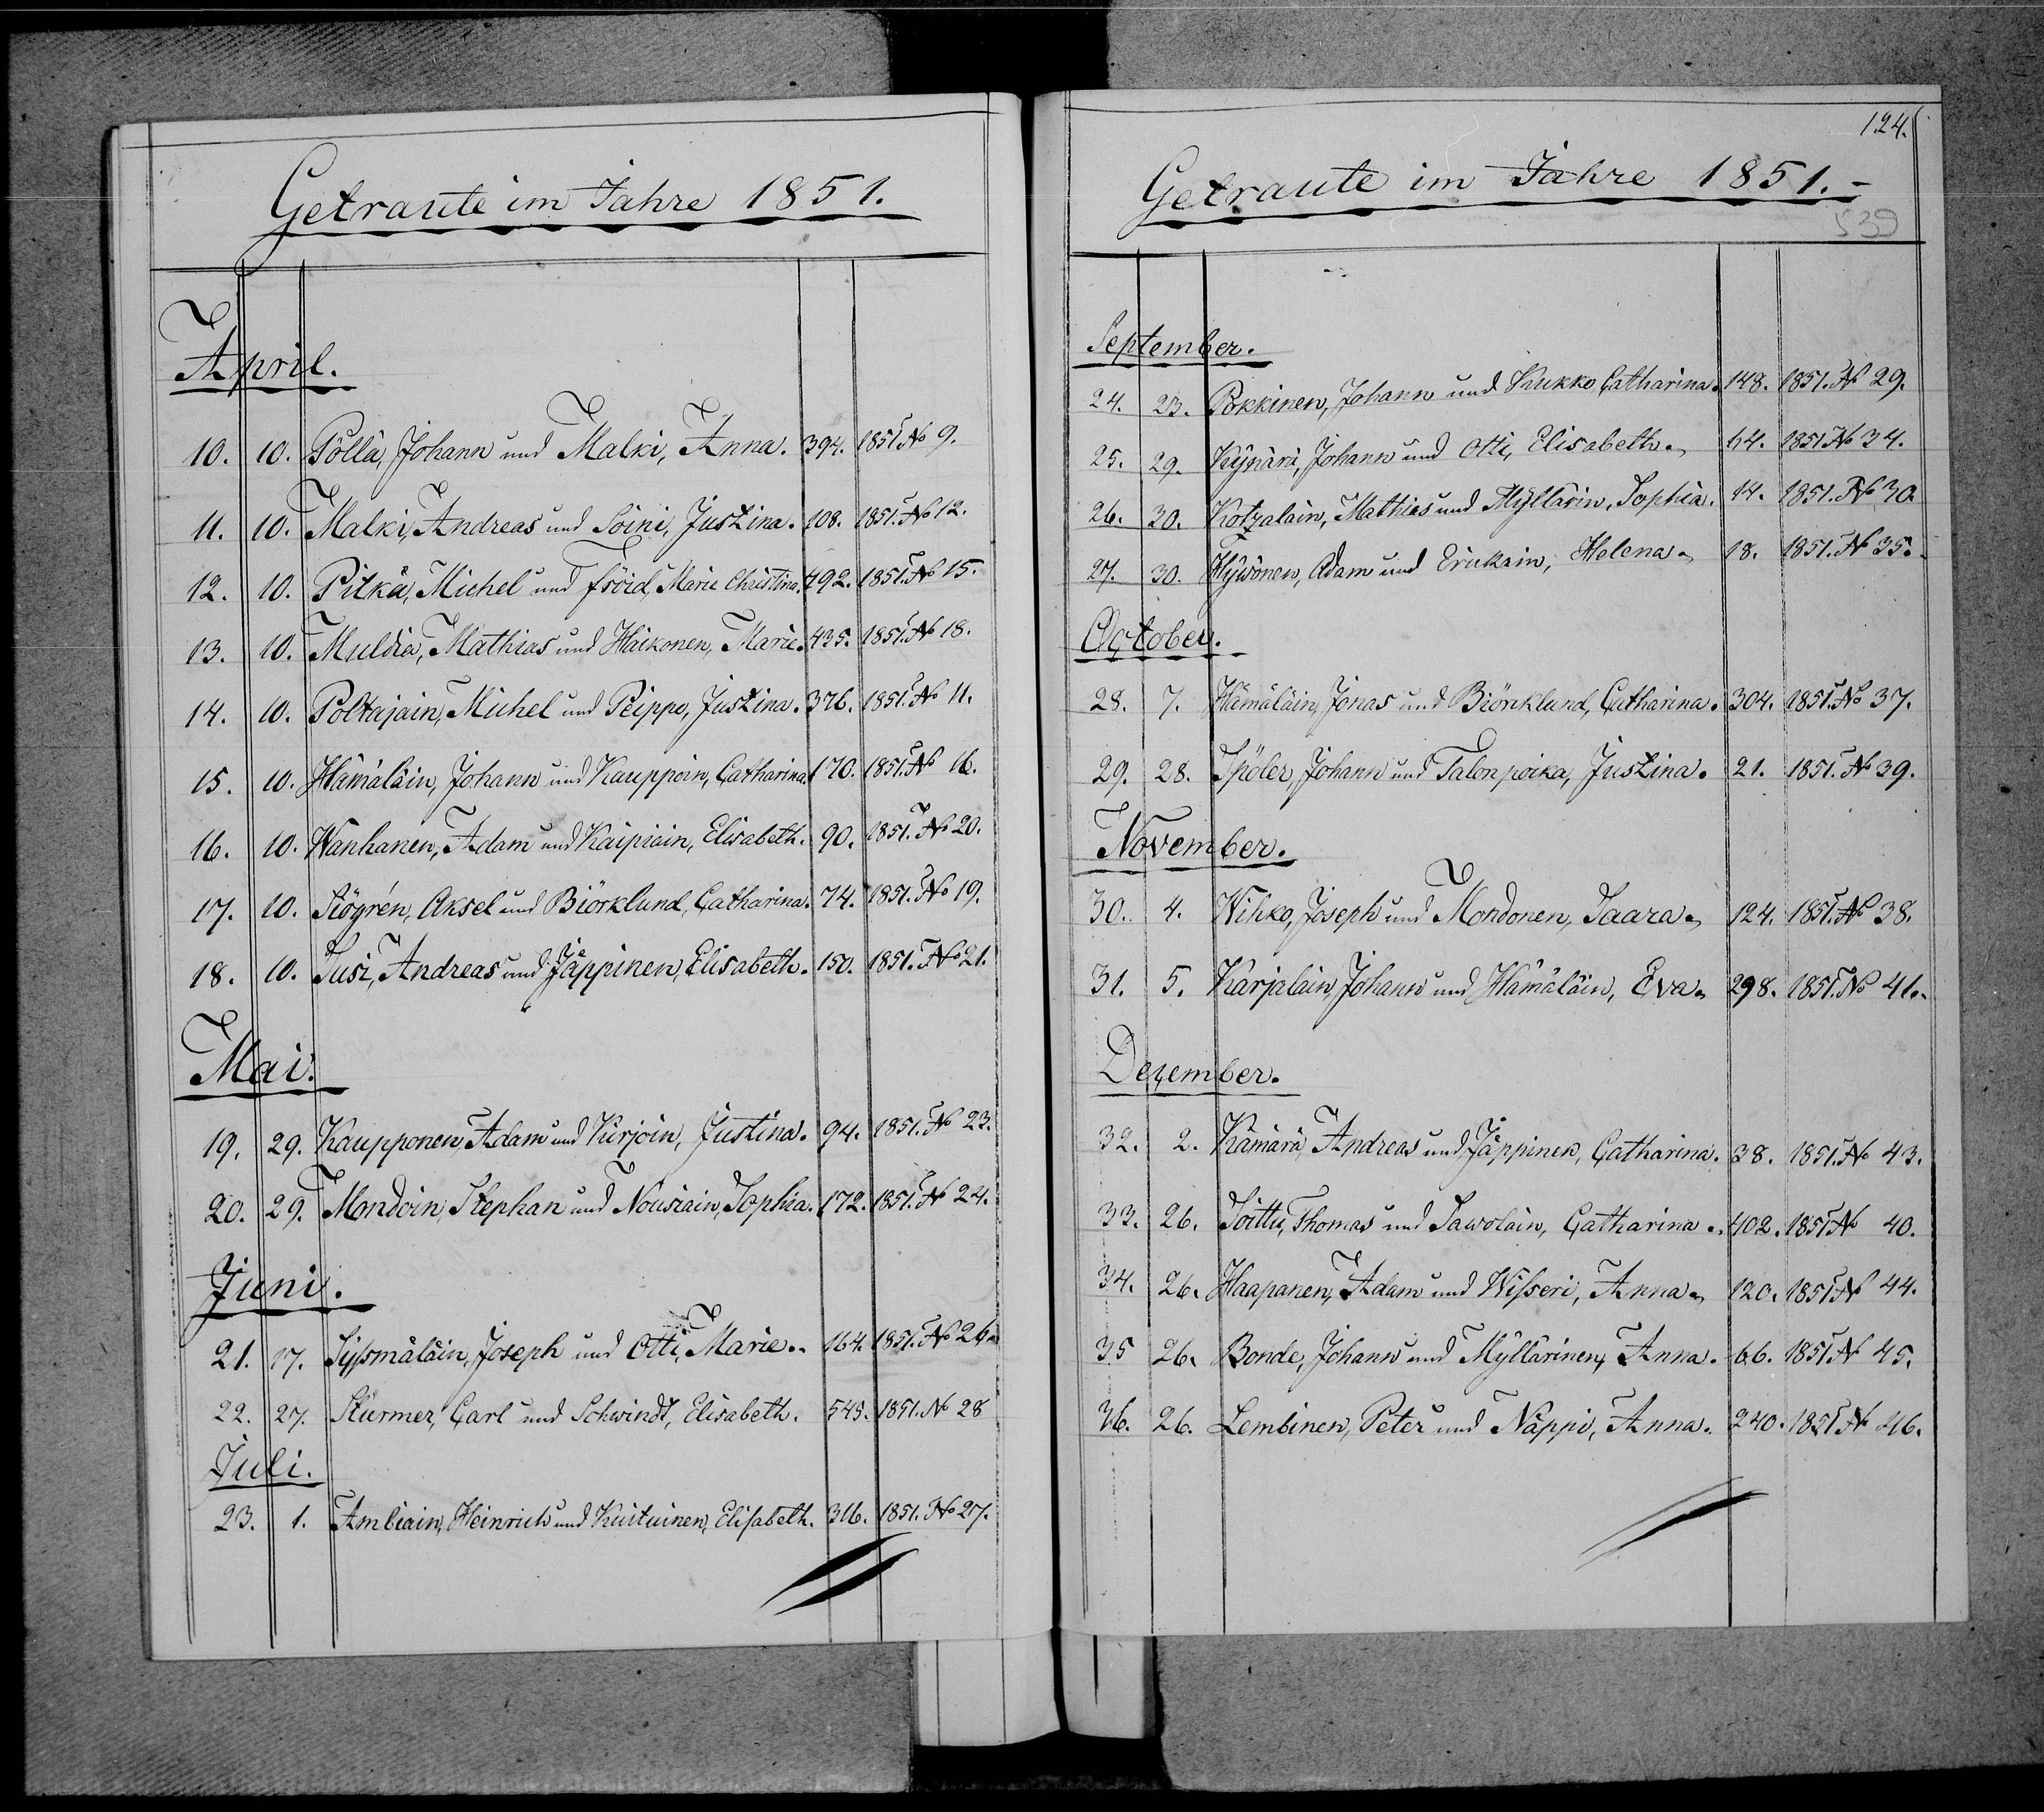 Getraute im Jahre 1851.
April.
10. 10. Pöllä, Johann und Malki, Anna. 394. 1851. No 9.
11. 10. Malki, Andreas und Soini, Justina. 108. 1851. No 12.
12. 10. Pitkä, Michel und Marie Christina. 492. 1851. No 15.
13. 10. Muldia, Mathias und Haikonen, Marie. 435. 1851. No 18.
14. 10. Poltajain, Michel und Peippo, Justina. 376. 1851. No 11.
15. 10. Hämäläin, Johann und Kauppoin, Catharina. 170. 1851. No 16.
16. 10. Wanhanen, Adam und Kaipiain, Elisabeth. 90. 1851. No 20.
17. 10. Siögrén, Aksel und Biörklund, Catharina. 74. 1851. No 19.
18. 10. Susi, Andreas und Jäppinen, Elisabeth. 150. 1851. No 21.
Mai.
19. 29. Kaupponen, Adam und Kurjoin, Justina. 94. 1851. No 23.
20. 29. Mondoin, Stephan und Nousiain, Sophia. 172. 1851. No 24.
Juni.
21. 17. Syssmäläin, Joseph und Otti, Marie. 164. 1851. No 26.
22. 27. Stürmer, Carl und Schwindt, Elisabeth. 545. 1851. No 28
Juli.
23. 1. Ambiain, Heinrich und Kuituinen, Elisabeth. 316. 1851. No 27.
124.
Getraute im Jahre 1851.-
539
September.
24. 23. Pokkinen, Johann und Kukko, Catharina. 148. 1851. No 29.
25. 29. Kÿnärä, Johann und Otti, Elisabeth. 64. 1851. No 34.
26. 30. Kotzalain, Mathias und Mÿllärin, Sophia. 14. 1851. No 30.
27. 30. Hÿwönen, Adam und Erickain, Helena. 18. 1851. No 35.
October.
28. 7. Hämäläin, Jonas und Biörklund, Catharina. 304. 1851. No 37.
29. 28. Spöler, Johann und Talonpoika, Justina. 21. 1851. No 39.
November.
30. 4. Wihko, Joseph und Mondonen, Saara. 124. 1851. No 38.
31. 5. Karjalain, Johann und Hämäläin, Eva. 298. 1851. No 41.
Dezember.
32. 2. Kämärä, Andreas und Jäppinen, Catharina. 38. 1851. No 43.
33. 26. Soittu, Thomas und Sawolain, Catharina. 402. 1851 No 40.
34. 26. Haapanen, Adam und Wisseri, Anna. 120. 1851 No 44.
35 26. Bonde, Johann und Mÿllärinen, Anna. 66. 1851. No 45.
36. 26. Lembinen, Peter und Näppi, Anna. 240. 1851 No 46.